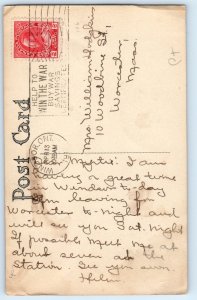 HELP TO
WIN THE WAR
BUY WAR
SAVINGS
Post Card
Mrs William
10 Woodbine St,
Worcester,
Mass.
I am
having a great time
in Windsor to-day
am leaving for
Worcester to night and
will see you at night
If possible meet me at
about seven at the
Station. See you soon